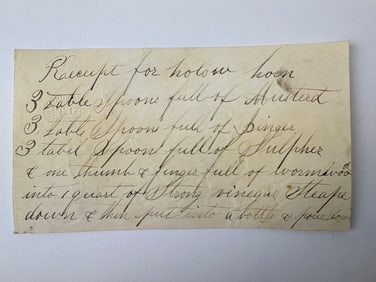 Receipt for holow horn
3 table spoons full of Musterd
3 table spoon full of Ginger
3 tabel spoon full of Sulpher
& one thumb & finger full of wormwood
into 1 quart of Strong vinegar Steape
down & then put into a bottle & pour down